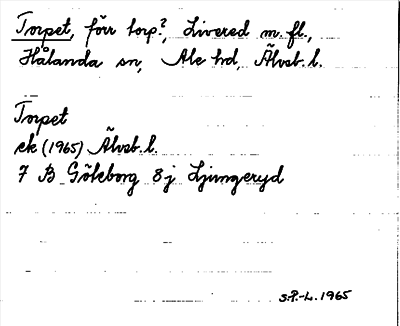 Torpet, förr torp?, Livered m.fl.,
Hålanda sn, Ale hd, Älvsb. l.
Torpet
ek (1965) Älvsb. l.
7 B Göteborg 8j Ljungeryd
S.P.-L. 1965